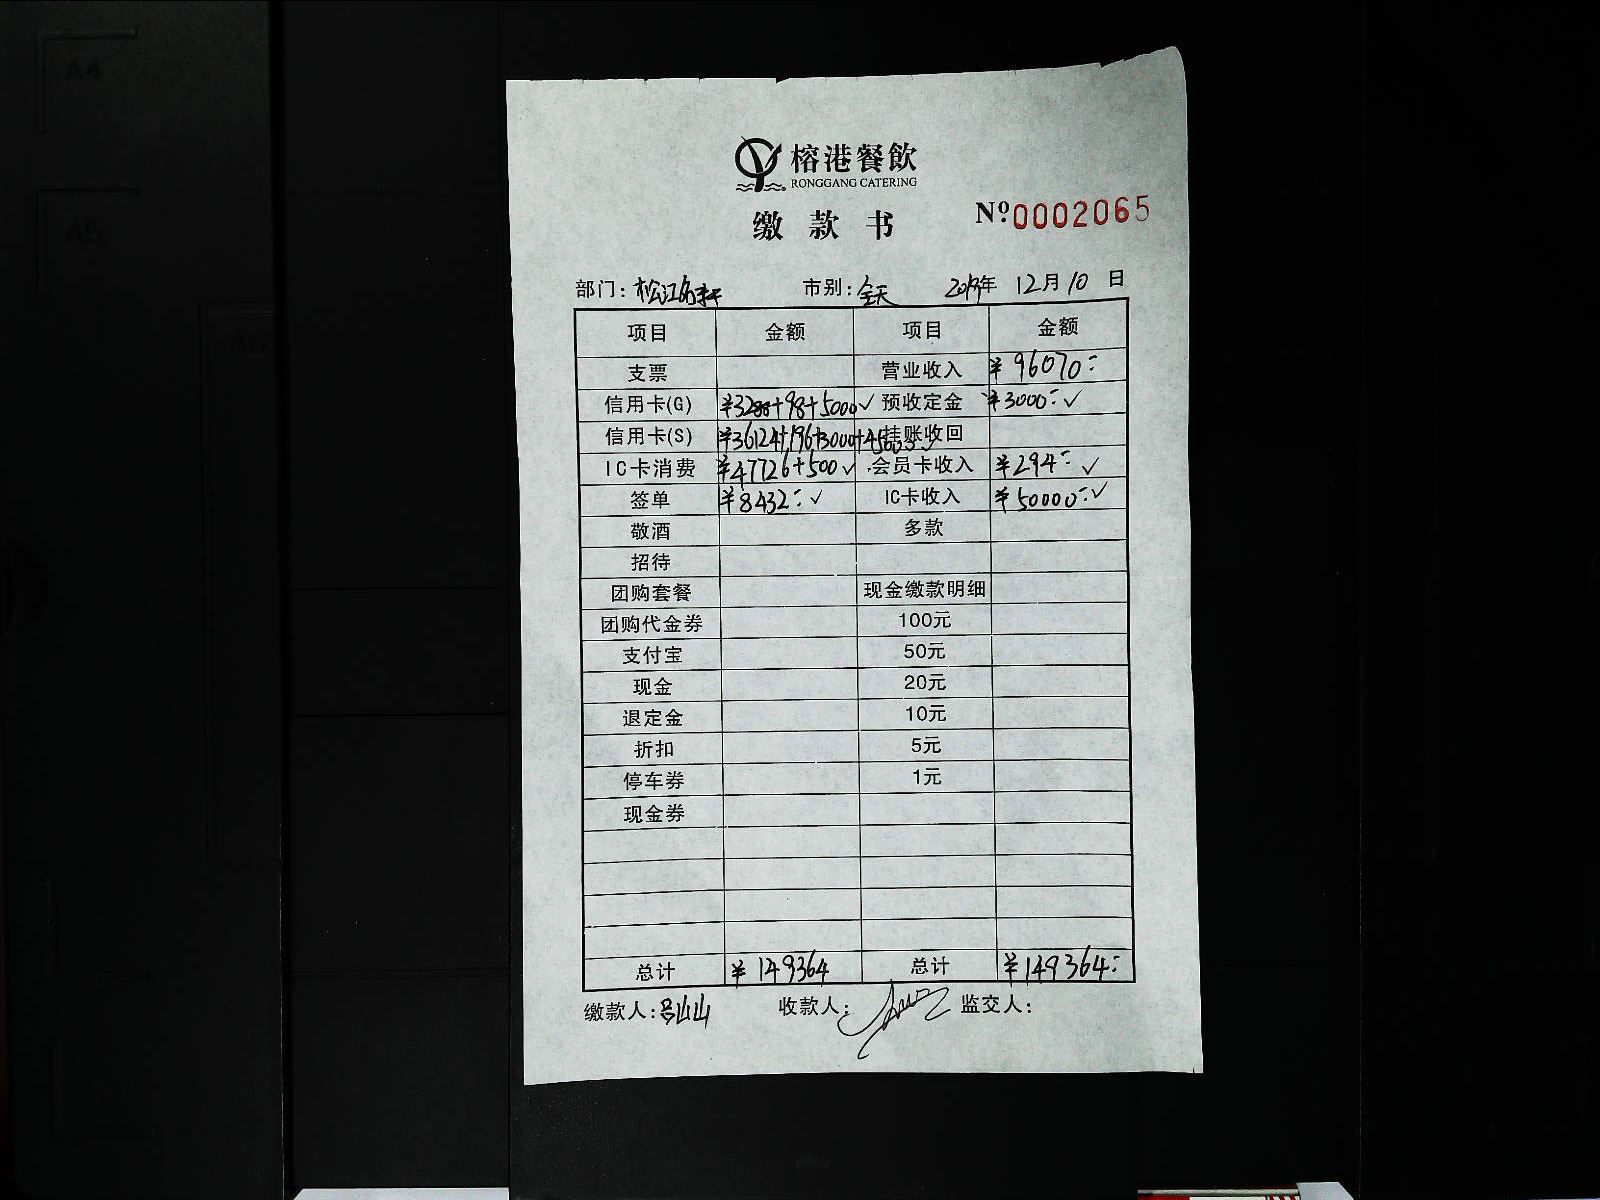 A4
A5
A6
榕港餐飲
RONGGANG CATERING
缴款书
Nº0002065
部门：松江名轩 市别：全天 2019年 12月10日
项目 金额 项目 金额
支票 营业收入 ¥96070:-
信用卡(G) ¥3288+98+5000✓ 预收定金 ¥3000:-✓
信用卡(S) ¥36124+196+3000+45000✓ 挂账收回
IC卡消费 ¥47726+500✓ 会员卡收入 ¥294:-✓
签单 ¥8432:-✓ IC卡收入 ¥50000:-✓
敬酒 多款
招待
团购套餐 现金缴款明细
团购代金券 100元
支付宝 50元
现金 20元
退定金 10元
折扣 5元
停车券 1元
现金券
总计 ¥149364 总计 ¥149364:-
缴款人：吕山山 收款人： 监交人：